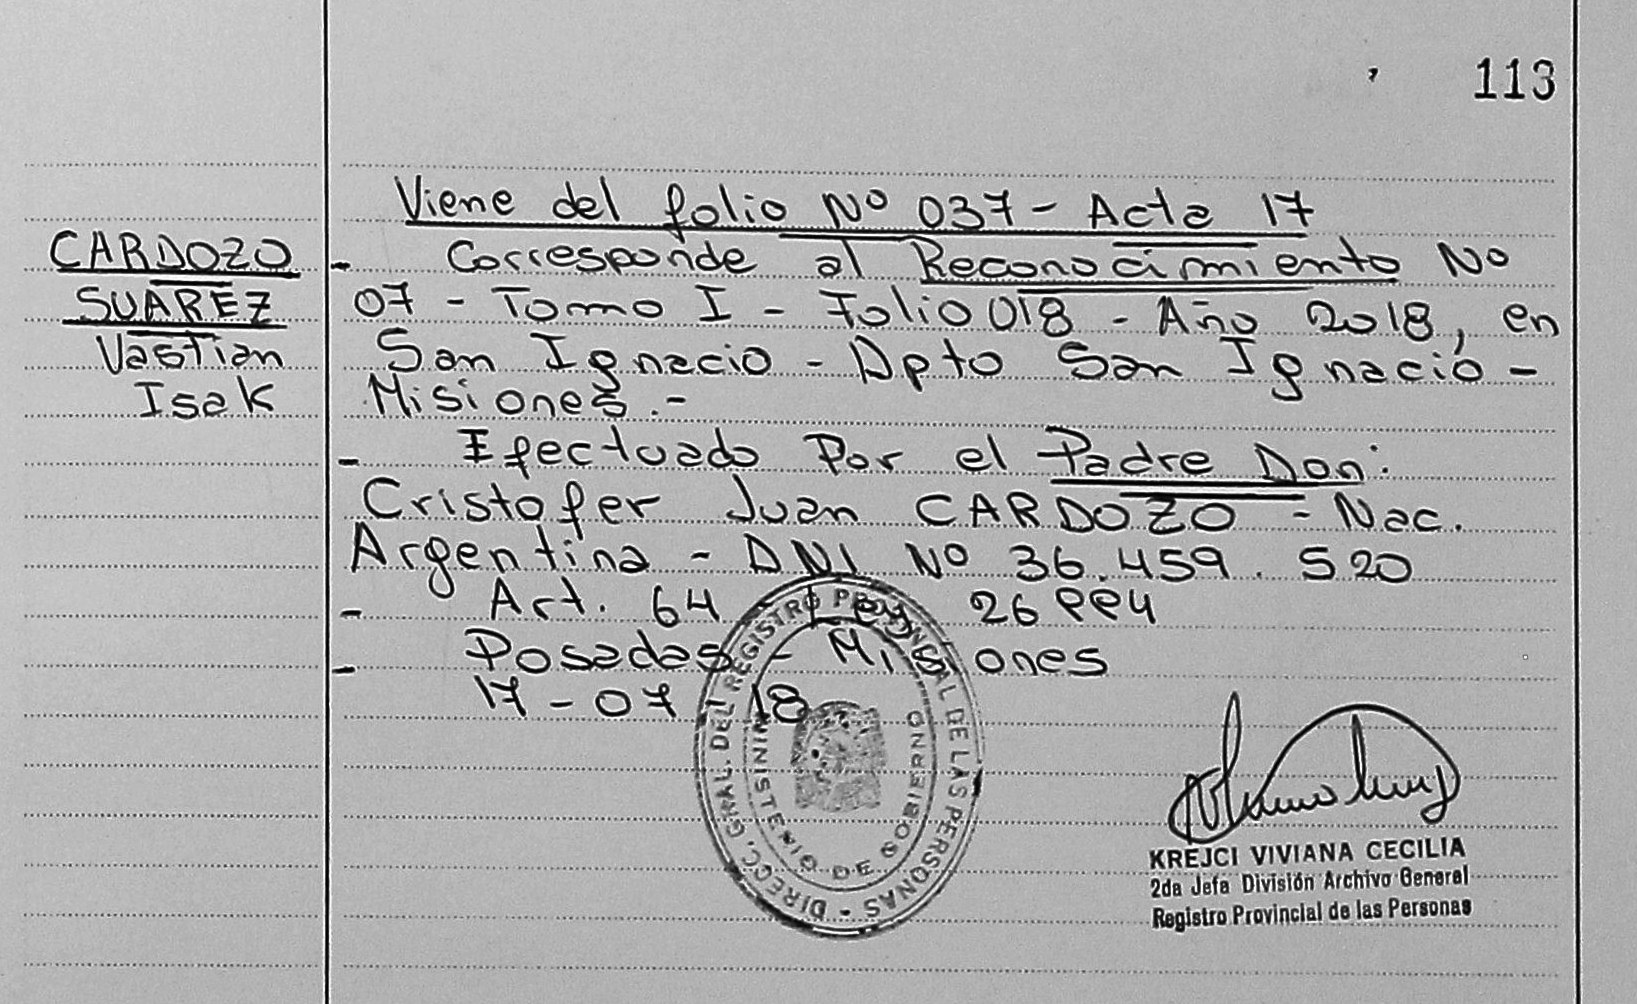 113
Viene del folio Nº 037 - Acta 17
CARDOZO
SUAREZ
Vastian
Isak
- Corresponde al Reconocimiento Nº
07 - Tomo I - Folio 018 - Año 2018, en
San Ignacio - Dpto San Ignacio -
Misiones.-
- Efectuado Por el Padre Don:
Cristofer Juan CARDOZO - Nac.
Argentina - DNI Nº 36.459.520
- Art. 64 Ley 26994
- Posadas - Misiones
17-07-18
DIRECC. GRAL. DEL REGISTRO PROVINCIAL DE LAS PERSONAS -
MINISTERIO DE GOBIERNO
KREJCI VIVIANA CECILIA
2da Jefa División Archivo General
Registro Provincial de las Personas